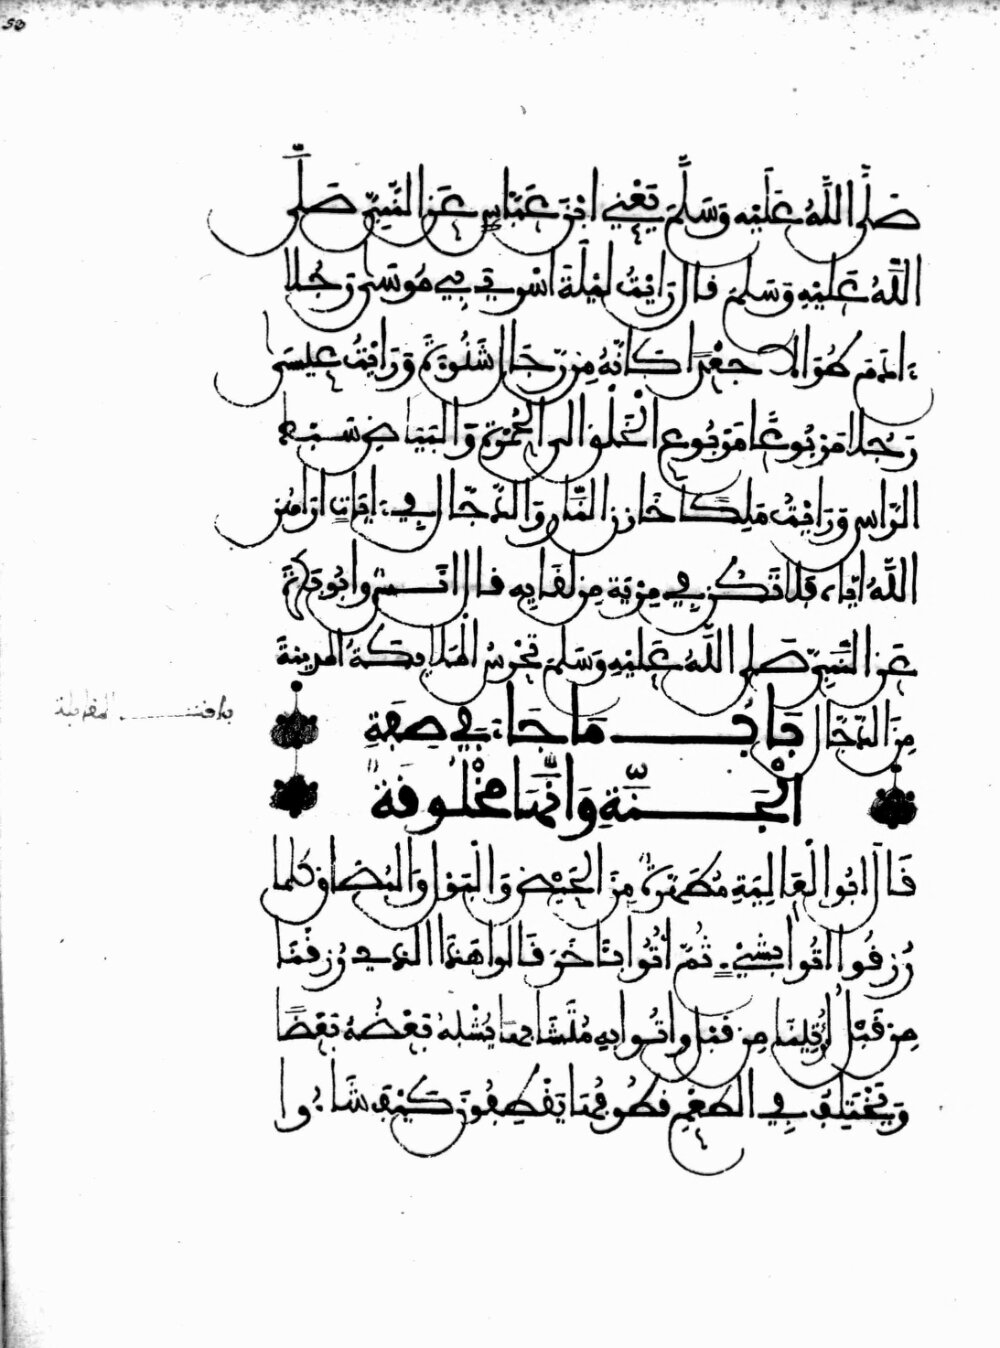 صَلَّى اللَّهُ عَلَيْهِ وَسَلَّمَ يَعْنِي ابْنَ عَبَّاسٍ عَنِ النَّبِيِّ صَلَّى
اللَّهُ عَلَيْهِ وَسَلَّمَ قَالَ رَأَيْتُ لَيْلَةَ أُسْرِيَ بِي مُوسَى رَجُلًا
ءَادَمَ طُوَالًا جَعْدًا كَأَنَّهُ مِن رِّجَالِ شَنُوءَةَ وَرَأَيْتُ عِيسَى
رَجُلًا مَرْبُوعًا مَرْبُوعَ الْخَلْقِ إِلَى الْحُمْرَةِ وَالْبَيَاضِ سَبْطَ
الرَّأْسِ وَرَأَيْتُ مَلِكًا خَازِنَ النَّارِ وَالدَّجَّالَ فِي ءَايَاتٍ أَرَاهُنَّ
اللَّهُ إِيَّاهُ فَلَا تَكُن فِي مِرْيَةٍ مِن لِقَائِهِ قَالَ أَنَسٌ وَأَبُو بَكْرَةَ
عَنِ النَّبِيِّ صَلَّى اللَّهُ عَلَيْهِ وَسَلَّمَ تَحْرُسُ الْمَلَائِكَةُ الْمَدِينَةَ
مِنَ الدَّجَّالِ بَابُ مَا جَاءَ فِي صِفَةِ
الْجَنَّةِ وَأَنَّهَا مَخْلُوقَةٌ
قَالَ أَبُو الْعَالِيَةِ مُطَهَّرَةٌ مِنَ الْحَيْضِ وَالْبَوْلِ وَالْبُصَاقِ كُلَّمَا
رُزِقُوا أُتُوا بِشَيْءٍ ثُمَّ أُتُوا بِئَاخَرَ قَالُوا هَذَا الَّذِي رُزِقْنَا
مِن قَبْلُ أُوتِينَا مِن قَبْلُ وَأُتُوا بِهِ مُتَشَابِهًا يُشْبِهُ بَعْضُهُ بَعْضًا
وَيَخْتَلِفُ فِي الطَّعْمِ قُطُوفُهَا يَقْطِفُونَ كَيْفَ شَاءُوا